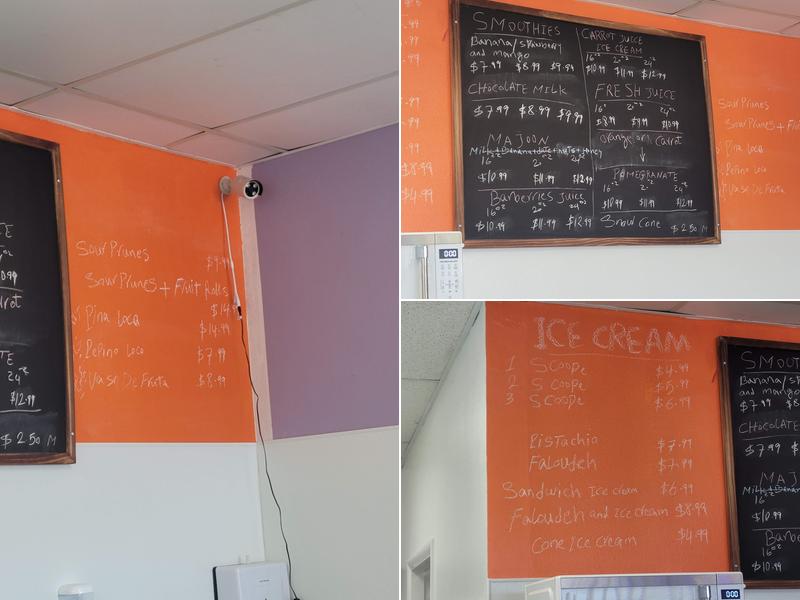 Sour Prunes $9.99
Sour Prunes + Fruit Rolls
$14.99
Pina Loca $14.99
Pepino Loco $7.99
Vaso De Fruta $8.99
TE
24oz
$12.99
$2.50
SMOOTHIES
Banana/strawberry
and mango
$7.99 $8.99 $9.99
CHOCOLATE MILK
$7.99 $8.99 $9.99
MAJOON
Milk+Banana+date+nuts+honey
16oz 20oz 24oz
$10.99 $11.99 $12.99
Barberries Juice
16oz 20oz 24oz
$10.99 $11.99 $12.99
CARROT JUICE
ICE CREAM
16oz 20oz 24oz
$10.99 $11.99 $12.99
FRESH JUICE
16oz 20oz 24oz
$8.99 $9.99 $10.99
orange or Carrot
POMEGRANATE
16oz 20oz 24oz
$10.99 $11.99 $12.99
Snow Cone $2.50
Sour Prunes
Sour Prunes + Frui
Pina Loca
Pepino Loco
Vaso De Fruta
0:00
ICE CREAM
1 Scoope $4.99
2 Scoope $5.99
3 Scoope $6.99
Pistachio $7.99
Faloudeh $7.99
Sandwich Ice cream $6.99
Faloudeh and Ice cream $8.99
Cone Ice cream $4.99
SMOOT
Banana/s
and man
$7.99 $8
CHOCOLATE
$7.99
MAJ
Milk+Banana
16oz
$10.99
Barbe
16oz
$10.99
0:00